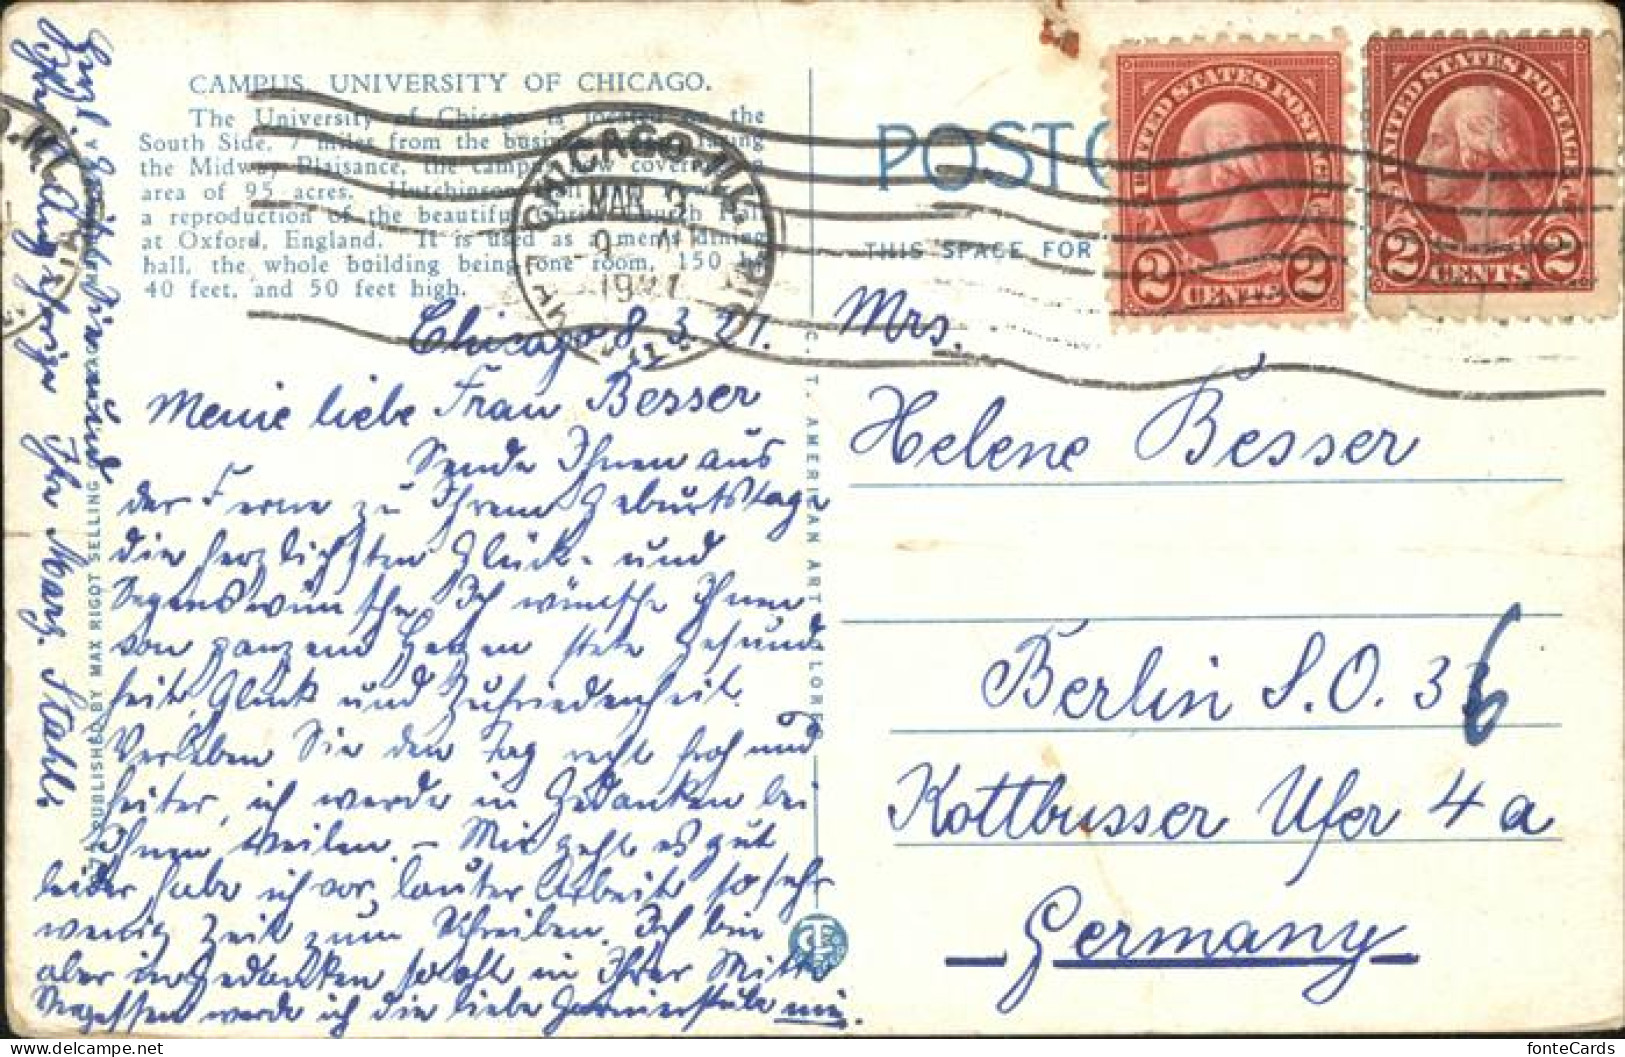 CAMPUS, UNIVERSITY OF CHICAGO.
The University of Chicago is located on the
South Side, 7 miles from the business facing
the Midway Plaisance, the campus now covers
area of 95 acres. Hutchinson
a reproduction of the beautiful Christ Church Hall
at Oxford, England. It is used as a men's dining
hall, the whole building being one room, 150 by
40 feet, and 50 feet high.
Chicago 8. 3. 27.
Meine liebe Frau Besser
Sende Ihnen aus
der Ferne zu Ihrem Geburtstage
die herzlichsten Glück- und
Segenswünsche. Ich wünsche Ihnen
von ganzem Herzen stets Gesund-
heit, Glück und Zufriedenheit.
Verleben Sie den Tag recht froh und
heiter, ich werde in Gedanken bei
Ihnen weilen. – Mir geht es gut
leider habe ich vor lauter Arbeit so sehr
wenig Zeit zum Schreiben. Ich bin
aber in Gedanken so oft in Ihrer Mitte
Vergessen werde ich die liebe nie.
Herzl.
Ihre Marg. Stahl.
PUBLISHED BY MAX RIGOT SELLING
C. T. AMERICAN ART COLORED
POSTC
THIS SPACE FOR
CHICAGO, ILL.
MAR
UNITED STATES POSTAGE
2 CENTS 2
UNITED STATES POSTAGE
2 CENTS 2
Mrs.
Helene Besser
Berlin S.O. 36
Kottbusser Ufer 4 a
Germany
fonteCards